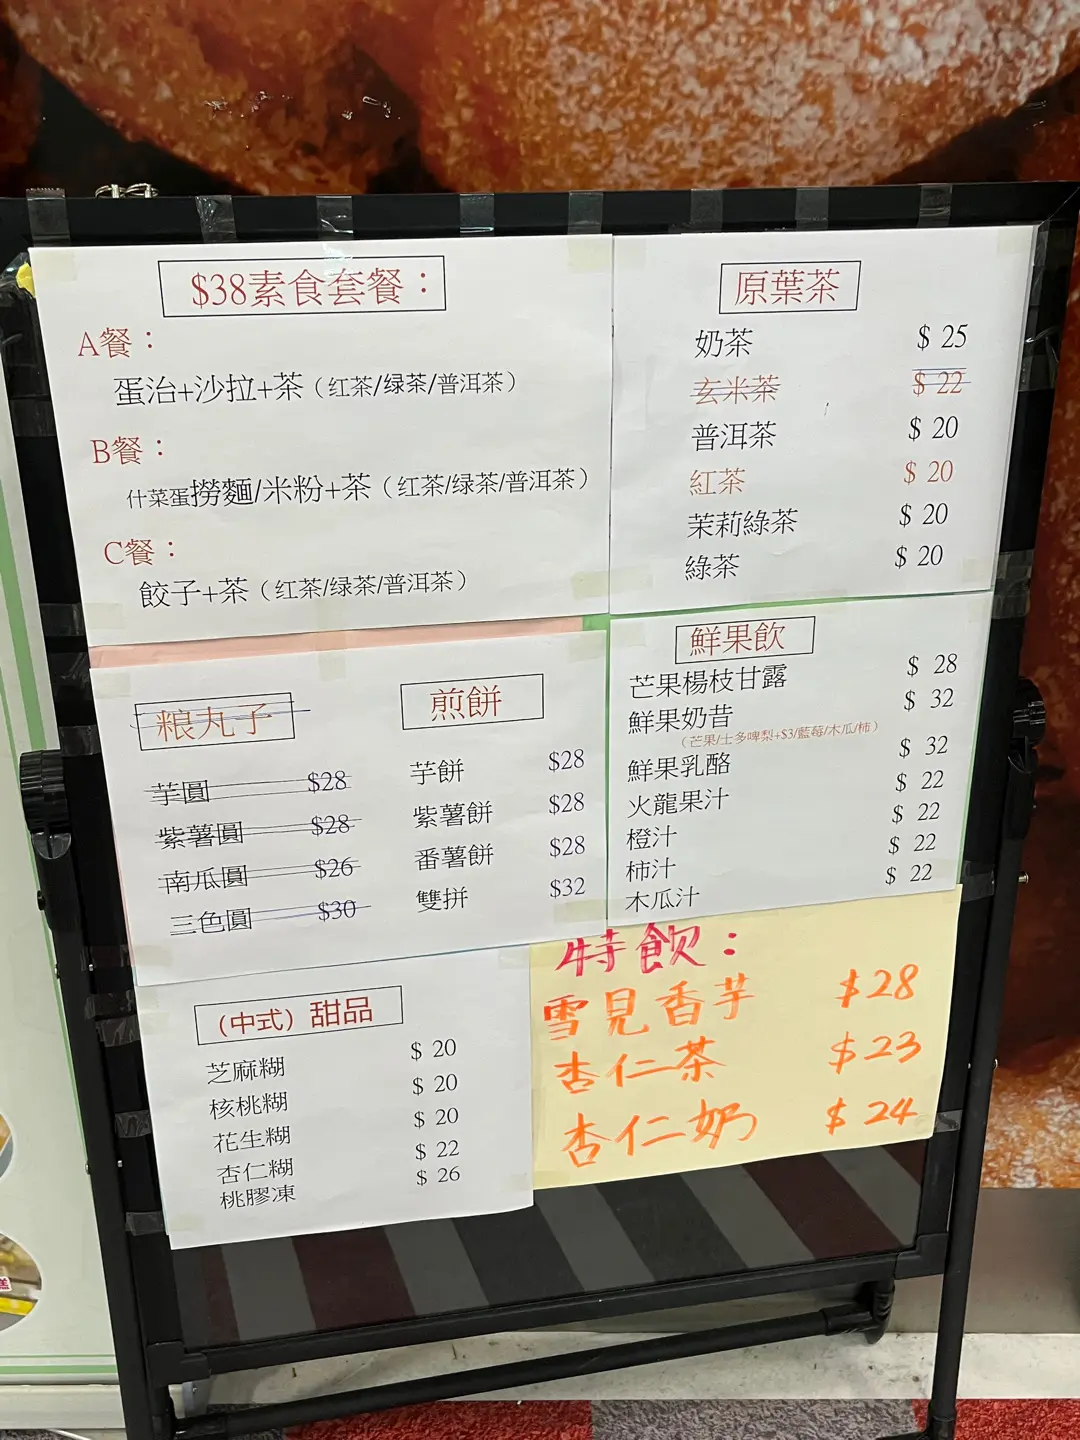 $38素食套餐：
A餐：
蛋治+沙拉+茶（红茶/绿茶/普洱茶）
B餐：
什菜蛋撈麵/米粉+茶（红茶/绿茶/普洱茶）
C餐：
餃子+茶（红茶/绿茶/普洱茶）
原葉茶
奶茶 $ 25
玄米茶 $ 22
普洱茶 $ 20
紅茶 $ 20
茉莉綠茶 $ 20
綠茶 $ 20
粮丸子
芋圓 $28
紫薯圓 $28
南瓜圓 $26
三色圓 $30
煎餅
芋餅 $28
紫薯餅 $28
番薯餅 $28
雙拼 $32
鮮果飲
芒果楊枝甘露 $ 28
鮮果奶昔 $ 32
（芒果/士多啤梨+$3/藍莓/木瓜/柿）
鮮果乳酪 $ 32
火龍果汁 $ 22
橙汁 $ 22
柿汁 $ 22
木瓜汁 $ 22
（中式）甜品
芝麻糊 $ 20
核桃糊 $ 20
花生糊 $ 20
杏仁糊 $ 22
桃膠凍 $ 26
特飲：
雪見香芋 $28
杏仁茶 $23
杏仁奶 $24
糕